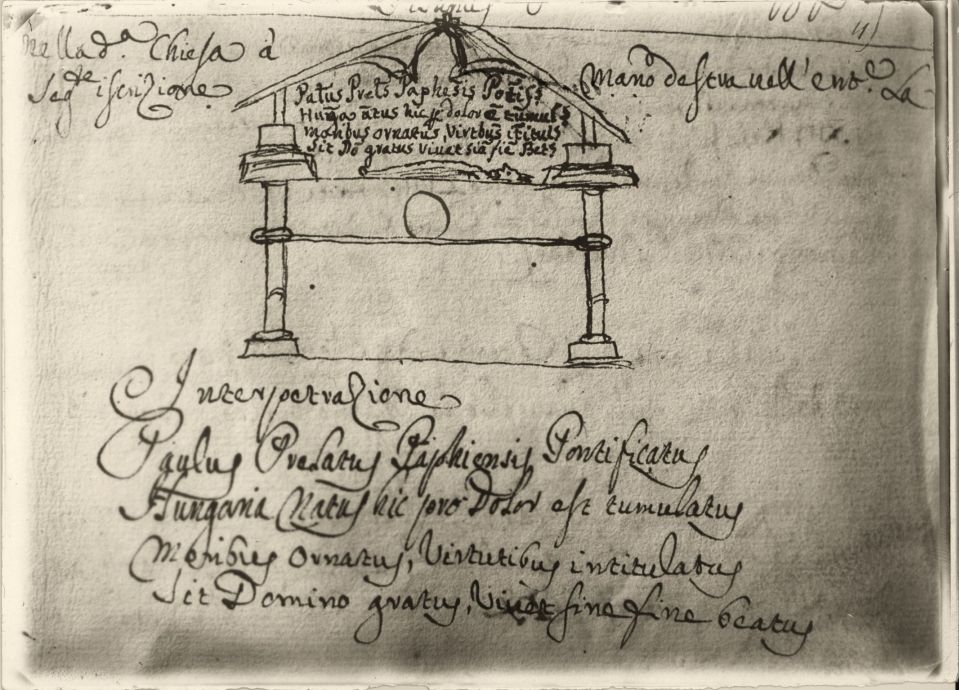 nella d.a Chiesa à Mano destra nell' ent.e La
seg.te iscrizione
Patus Prets Paphesis Potifs
Huga natus hic p dolor e tumuls
moribus ornatus, Virtbus itituls
Sit Dō gratus vivat sia fie Bets
Interpetrazione
Paulus Prelatus Paphiensis Pontificatus
Hungaria Natus hic pro Dolor est tumulatus
Moribus ornatus, Virtutibus intitulatus
Sit Domino gratus, Vivat sine fine beatus